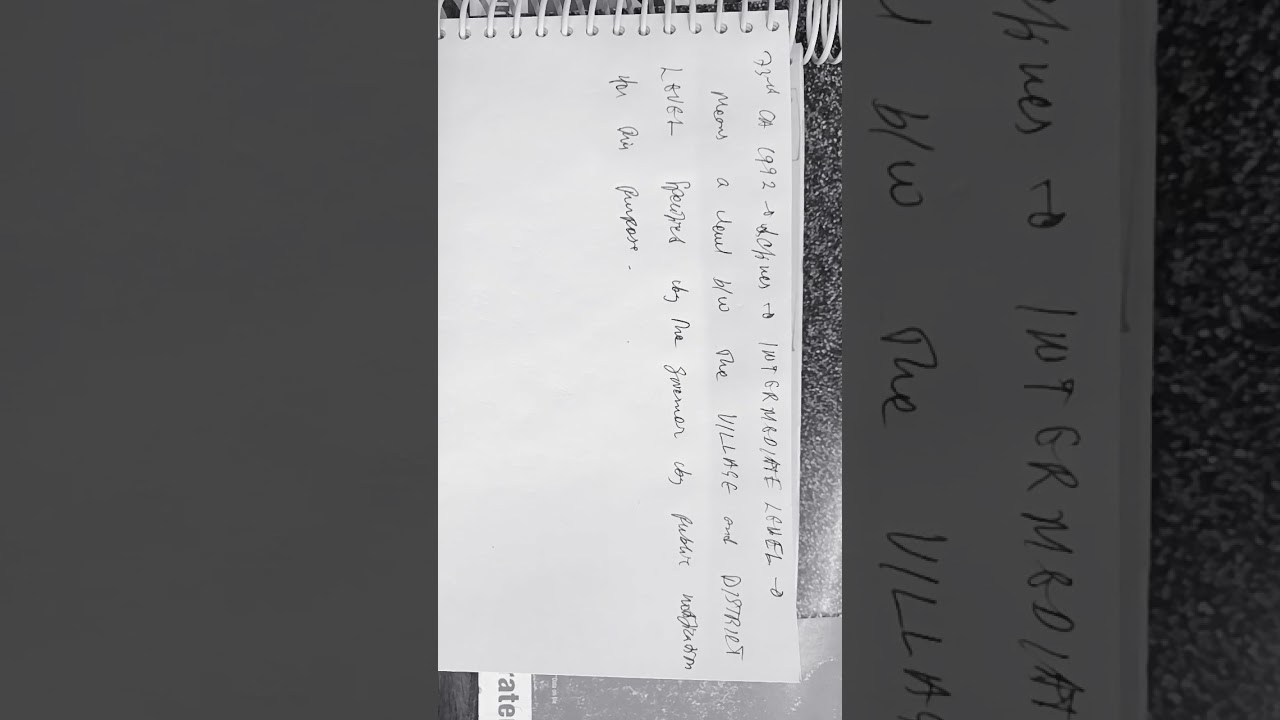 73rd CA 1992 → defines → INTERMEDIATE LEVEL →
Means a level b/w The VILLAGE and DISTRICT
LEVEL specified by the governor by public notification
for this purpose.
rate